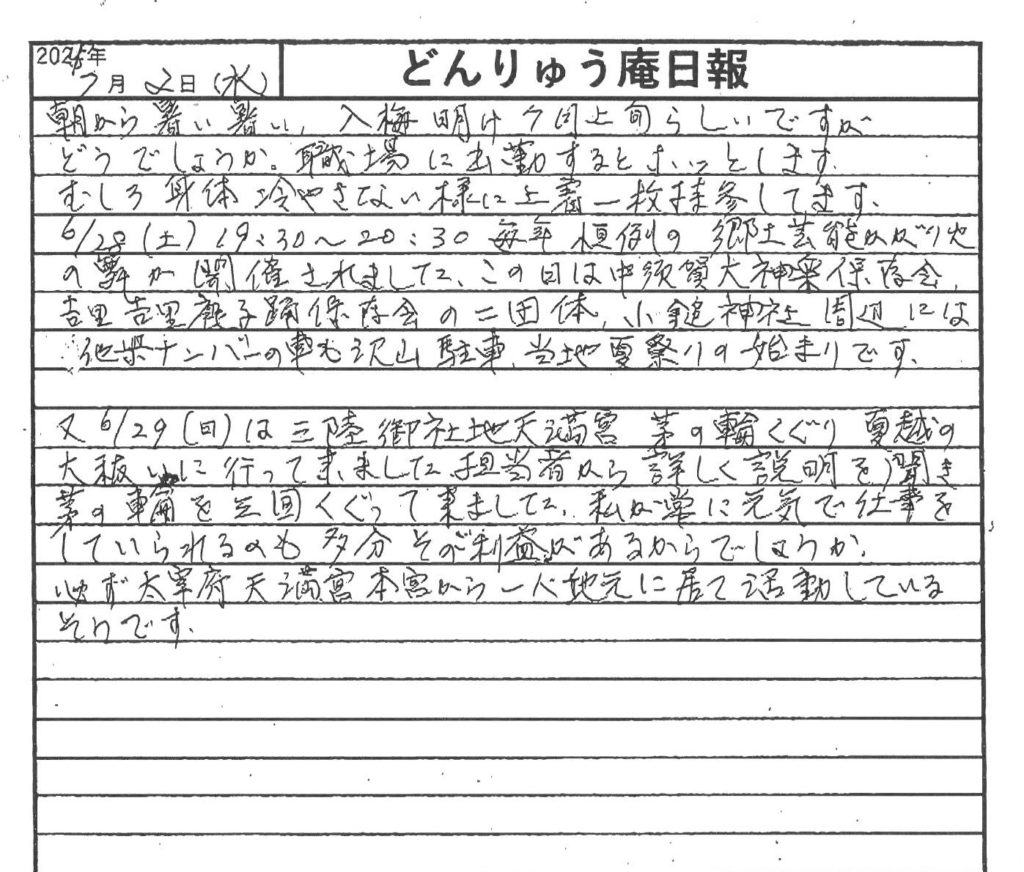 2025年
7月2日(水)
どんりゅう庵日報
朝から暑い暑い、入梅明け今月上旬らしいですが
どうでしょうか。職場に出勤するとホッとします。
むしろ身体冷やさない様に上着一枚持参してます。
6/28(土)19:30〜20:30 毎年恒例の郷土芸能かがり火
の舞が開催されました、この日は中須賀大神楽保存会、
吉里吉里虎子踊保存会の二団体、小鎚神社周辺には
他県ナンバーの車も沢山駐車、当地夏祭りの始まりです。
又6/29(日)は三陸御社地天満宮 茅の輪くぐり 夏越の
大祓いに行って来ました担当者から詳しく説明を聞き
茅の輪を三回くぐって来ました、私が常に元気で仕事を
していられるのも多分その利益があるからでしょうか。
必ず太宰府天満宮本宮から一人地元に居て活動している
そうです。